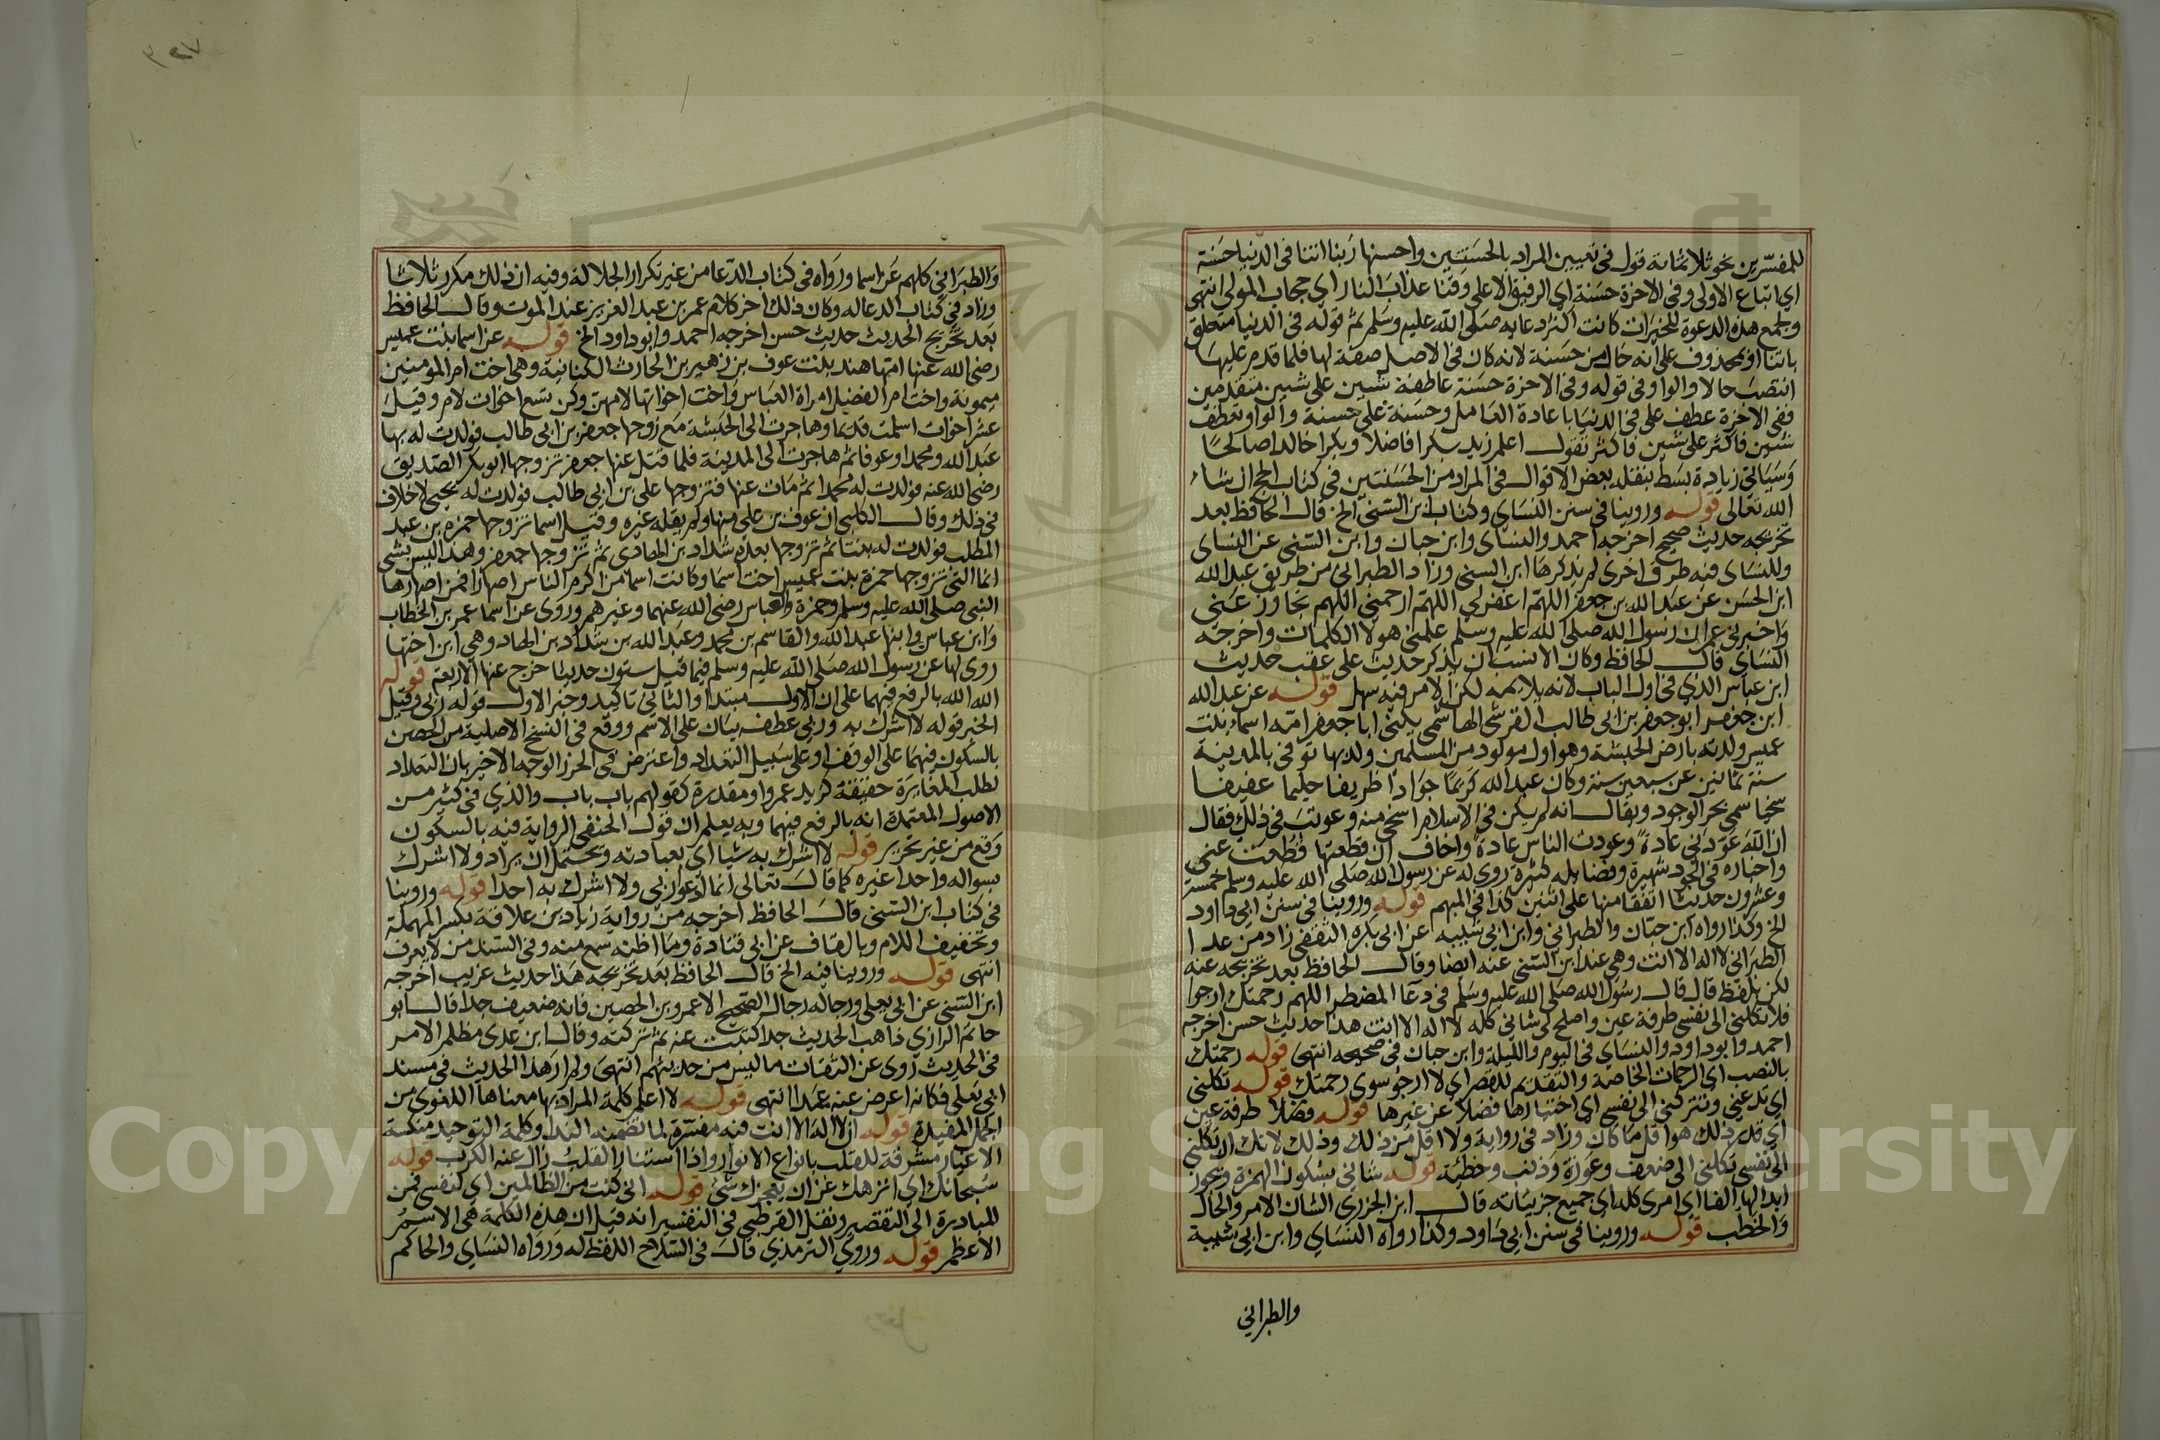 للمفسرين نحو ثلاثمائة قول في تعيين المراد بالحسنتين واحسنها ربنا اتنا في الدنيا حسنة
اي اتباع الاولى وفي الاخرة حسنة اي الرفيق الاعلى وقنا عذاب النار اي حجاب المولى انتهى
ولجمع هذه الدعوة للخيرات كانت اكثر دعائه صلى الله عليه وسلم ثم قوله في الدنيا متعلق
باتنا او محذوف على انه حال من حسنة لانه كان في الاصل صفة لها فلما قدم عليها
انتصب حالا والواو في قوله وفي الاخرة حسنة عاطفة شيين على شيين متقدمين
ففي الاخرة عطف على في الدنيا باعادة العامل وحسنة على حسنة والواو تعطف
شيين فاكثر على شيين فاكثر تقول اعلم زيد بكرا فاضلا وبكرا خالدا صالحا
وسيأتي زيادة بسط بنقل بعض الاقوال في المراد من الحسنتين في كتاب الحج ان شاء
الله تعالى قوله وروينا في سنن النساي وكتاب ابن السني الخ قال الحافظ بعد
تخريجه حديث صحيح اخرجه احمد والنساي وابن حبان وابن السني عن النساي
وللنساي فيه طرق اخرى لم يذكرها ابن السني وزاد الطبراني من طريق عبد الله
ابن الحسن عن عبد الله بن جعفر اللهم اغفر لي اللهم ارحمني اللهم تجاوز عني
واخبرني عمي ان رسول الله صلى الله عليه وسلم علمني هولا الكلمات واخرجه
النساي قال الحافظ وكان الانسب ان يذكر حديث علي عقب حديث
ابن عباس الذي في اول الباب لانه بلا يمه لكن الامر فيه سهل قوله عن عبد الله
ابن جعفر ابو جعفر بن ابي طالب القرشي الهاشمي يكنى ابا جعفر امه اسماء بنت
عميس ولدته بارض الحبشة وهو اول مولود من المسلمين ولد بها توفي بالمدينة
سنة ثمانين عن سبعين سنة وكان عبد الله كريما جوادا ظريفا حليما عفيفا
سخيا سمي بحر الجود ويقال انه لم يكن في الاسلام اسخى منه وعوتب في ذلك فقال
ان الله عودني عادة وعودت الناس عادة واخاف ان قطعتها قطعت عني
واخباره في الجود شهيرة وفضايله كثيرة روي له عن رسول الله صلى الله عليه وسلم خمسة
وعشرون حديثا اتفقا منها على اثنين كذا في المبهم قوله وروينا في سنن ابي داود
الخ وكذا رواه ابن حبان والطبراني وابن ابي شيبه عن ابي بكره الثقفي زاد من عدا
الطبراني لا اله الا انت وهي عند ابن السني عنه ايضا وقال الحافظ بعد تخريجه عنه
لكن بلفظ قال قال رسول الله صلى الله عليه وسلم في دعا المضطر اللهم رحمتك ارجوا
فلا تكلني الى نفسي طرفة عين واصلح لي شاني كله لا اله الا انت هذا حديث حسن اخرجه
احمد وابو داود والنساي في اليوم والليلة وابن حبان في صحيحه انتهى قوله رحمتك
بالنصب اي الرحمات الخاصة والتقديم للقصر اي لا ارجو سوى رحمتك قوله تكلني
اي تدعني وتتركني الى نفسي اي اختيارها فضلا عن غيرها قوله فضلا طرفة عين
اي قدر ذلك هو اقل ما كان وزاد في رواية ولا اقل من ذلك وذلك لانك ان تكلني
الى نفسي تكلني الى ضعف وعورة وذنب وخطئة قوله شاني بسكون الهمزة ويجوز
ابدالها الفا اي امري كله اي جميع جزيياته قال ابن الجزري الشان الامر والحال
والخطب قوله وروينا في سنن ابي داود وكذا رواه النساي وابن ابي شيبة
والطبراني
والطبراني كلهم عن اسما ورواه في كتاب الدعا من غير تكرار الجلالة وفيه ان ذلك مكرر ثلاثا
وزاد في كتاب الدعا له وكان ذلك اخر كلام عمر بن عبد العزيز عند الموت وقال الحافظ
بعد تخريج الحديث حديث حسن اخرجه احمد وابو داود الخ قوله عن اسما بنت عميس
رضي الله عنها امها هند بنت عوف بن زهير بن الحارث الكنانية وهي اخت ام المومنين
ميمونة واخت ام الفضل امراة العباس واخت اخواتها لامهن وكن تسع اخوات لام وقيل
عشر اخوات اسلمت قديما وهاجرت الى الحبشة مع زوجها جعفر بن ابي طالب فولدت له بها
عبد الله ومحمدا وعوفا ثم هاجرت الى المدينة فلما قتل عنها جعفر تزوجها ابو بكر الصديق
رضي الله عنه فولدت له محمدا ثم مات عنها فتزوجها علي بن ابي طالب فولدت له يحيى لا خلاف
في ذلك وقال الكلبي ان عوف بن علي منها ولم يقله غيره وقيل اسما تزوجها حمزة بن عبد
المطلب فولدت له بنتا ثم تزوجها بعده شداد بن الهادي ثم تزوجها جعفر وهذا ليس بشي
انما التي تزوجها حمزة بنت عميس اخت اسما وكانت اسما من اكرم الناس اصهارا فمن اصهارها
النبي صلى الله عليه وسلم وحمزة والعباس رضي الله عنهما وغيرهم وروى عن اسما عمر بن الخطاب
وابن عباس وابنها عبد الله والقاسم بن محمد وعبد الله بن شداد بن الهاد وهي ابن اختها
روي لها عن رسول الله صلى الله عليه وسلم فيما قيل ستون حديثا خرج عنها الاربعة قوله
الله الله بالرفع فيهما على ان الاول مبتدا والثاني تاكيد وخبر الاول قوله ربي وقيل
الخبر قوله لا اشرك به وربي عطف بيان على الاسم ووقع في النسخ الاصلية من الحصن
بالسكون فيهما على الوقف او على سبيل التعداد واعترض في الحرز الوجه الاخير بان التعداد
لطلب المغايرة حقيقة كزيد عمرو او مقدرة كقولهم باب باب والذي في كثير من
الاصول المعتمدة انه بالرفع فيهما وبه يعلم ان قول الحنفي الرواية فيه بالسكون
وقع من غير تحرير قوله لا اشرك به شيا اي بعبادته ويحتمل ان يراد ولا اشرك
بسواله واحدا غيره كما قال تعالى انما ادعوا ربي ولا اشرك به احدا قوله وروينا
في كتاب ابن السني قال الحافظ اخرجه من رواية زياد بن علاقة بكسر المهملة
وتخفيف اللام وبالقاف عن ابي قتادة وما اظنه سمع منه وفي السند من لا يعرف
انتهى قوله وروينا فيه الخ قال الحافظ بعد تخريجه هذا حديث غريب اخرجه
ابن السني عن ابي يعلى ورجاله رجال الصحيح الا عمرو بن الحصين فانه ضعيف جدا قال ابو
حاتم الرازي ذاهب الحديث جدا كتبت عنه ثم تركته وقال ابن عدي مظلم الامر
في الحديث روى عن الثقات ما ليس من حديثهم انتهى ولم ار هذا الحديث في مسند
ابي يعلى فكانه اعرض عنه عمدا انتهى قوله لا اعلم كلمة المراد بها معناها اللغوي من
الجمل المفيدة قوله ان لا اله الا انت فيه مفسرة لما تضمنه الندا وكلمة التوحيد منكسة
الاغيار مشرقة للقلب بانواع الانوار واذا استنار القلب زال عنه الكرب قوله
سبحانك اي انزهك عن ان يعجزك شي قوله اني كنت من الظالمين اي لنفسي فمن
للمبادرة الى التقصير ونقل القرطبي في التفسير انه قيل ان هذه الكلمة هي الاسم
الاعظم قوله وروى الترمذي قال في السلاح اللفظ له ورواه النساي والحاكم
Copyright © King Saud University